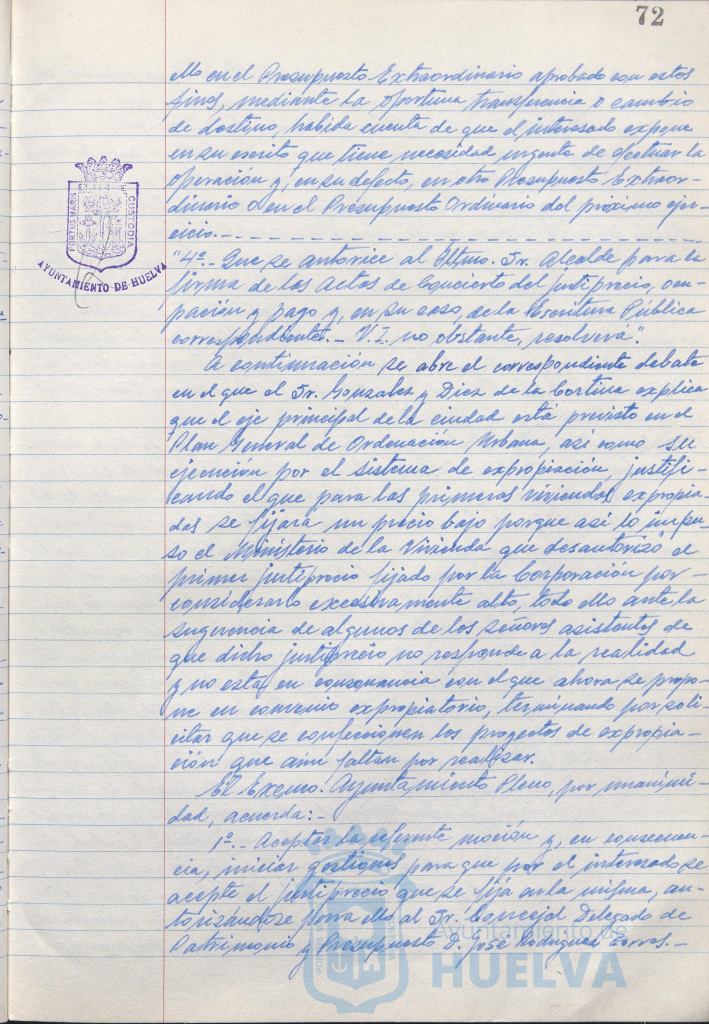 72
ello en el Presupuesto Extraordinario aprobado con estos
fines, mediante la oportuna transferencia o cambio
de destino, habida cuenta de que el interesado expone
en su escrito que tiene necesidad urgente de efectuar la
operación y, en su defecto, en otro Presupuesto Extraor-
dinario o en el Presupuesto Ordinario del próximo ejer-
cicio.-
PORTUS MARIS
CUSTODIA
AYUNTAMIENTO DE HUELVA
"4º.- Que se autorice al Iltmo. Sr. Alcalde para la
firma de las Actas de Concierto del justiprecio, ocu-
pación y pago y, en su caso, de la Escritura Pública
correspondiente.- V.I. no obstante, resolverá".
A continuación se abre el correspondiente debate
en el que el Sr. Gonzalez y Diez de la Cortina explica
que el eje principal de la ciudad está previsto en el
Plan General de Ordenación Urbana, así como su
ejecución por el sistema de expropiación, justifi-
cando el que para las primeras viviendas expropia-
das se fijara un precio bajo porque así lo impu-
so el Ministerio de la Vivienda que desautorizó el
primer justiprecio fijado por la Corporación por
considerarlo excesivamente alto, todo ello ante la
sugerencia de algunos de los señores asistentes de
que dicho justiprecio no responde a la realidad
y no está en consonancia con el que ahora se propo-
ne en convenio expropiatorio, terminando por soli-
citar que se confeccionen los proyectos de expropia-
ción que aún faltan por realizar.
El Excmo. Ayuntamiento Pleno, por unanimi-
dad, acuerda:-
1º.- Aceptar la referente moción y, en consecuen-
cia, iniciar gestiones para que por el interesado se
acepte el justiprecio que se fija en la misma, au-
torizándose para ello al Sr. Concejal Delegado de
Patrimonio y Presupuesto D. José Rodriguez Torres.-
Ayuntamiento de
HUELVA